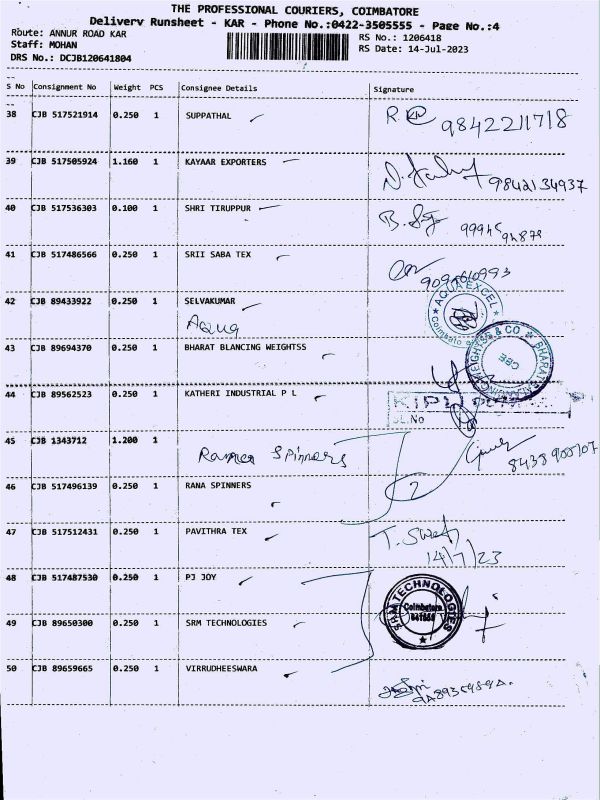 THE PROFESSIONAL COURIERS, COIMBATORE
Delivery Runsheet - KAR - Phone No.:0422-3505555 - Page No.:4
Route: ANNUR ROAD KAR
RS No.: 1206418
Staff: MOHAN
RS Date: 14-Jul-2023
DRS No.: DCJB120641804
S No Consignment No Weight PCS Consignee Details Signature
38 CJB 517521914 0.250 1 SUPPATHAL 9842211718
39 CJB 517505924 1.160 1 KAYAAR EXPORTERS 9842134937
40 CJB 517536303 0.100 1 SHRI TIRUPPUR
41 CJB 517486566 0.250 1 SRII SABA TEX
42 CJB 89433922 0.250 1 SELVAKUMAR
Aqua
AQUA EXCEL
43 CJB 89694370 0.250 1 BHARAT BLANCING WEIGHTSS
CBE
44 CJB 89562523 0.250 1 KATHERI INDUSTRIAL P L
SL.No
45 CJB 1343712 1.200 1
Spinners
46 CJB 517496139 0.250 1 RANA SPINNERS
2
47 CJB 517512431 0.250 1 PAVITHRA TEX
14/7/23
48 CJB 517487530 0.250 1 PJ JOY
SRM TECHNOLOGIES
Coimbatore
49 CJB 89650300 0.250 1 SRM TECHNOLOGIES
50 CJB 89659665 0.250 1 VIRRUDHEESWARA